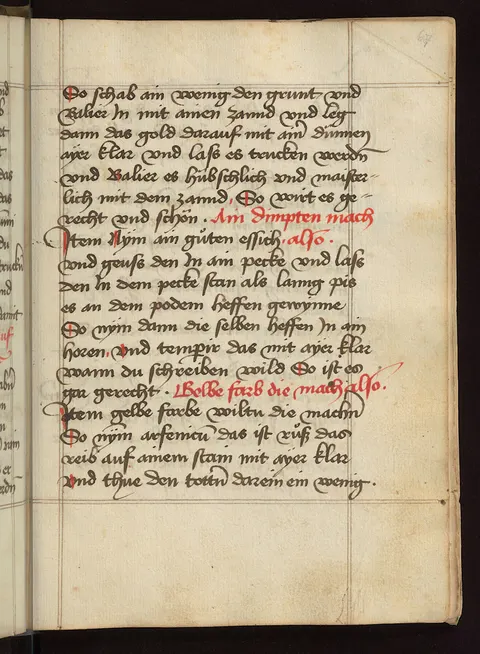 So schab ain wenig den grunt vnd
Balier Jn mit ainen zannd vnd leg
dann das gold darauf mit aim dünnen
ayer klar vnd lass es trucken werdn̄
vnd Balier es hübschlich vnd maister-
lich mit dem zannd, So wirt es ge-
recht vnd schön. Ain dimpten mach
Jtem Nym ain guͦten essich, also.
vnd geuss den Jn ain pecke vnd lass
den in dem pecke stan als lanng pis
es an dem podem heffen gewynne
So nym dann die selben heffen Jn ain
horen, vnd temperir das mit ayer klar
wann du schreiben wild So ist es
gar gerecht. Gelbe farb die mach also.
Jtem gelbe farbe wiltu die machn̄
So nym arsenicū das ist ruͦß das
reib auf ainem stain mit ayer klar
vnd thue den tottn̄ darein ein wenig.